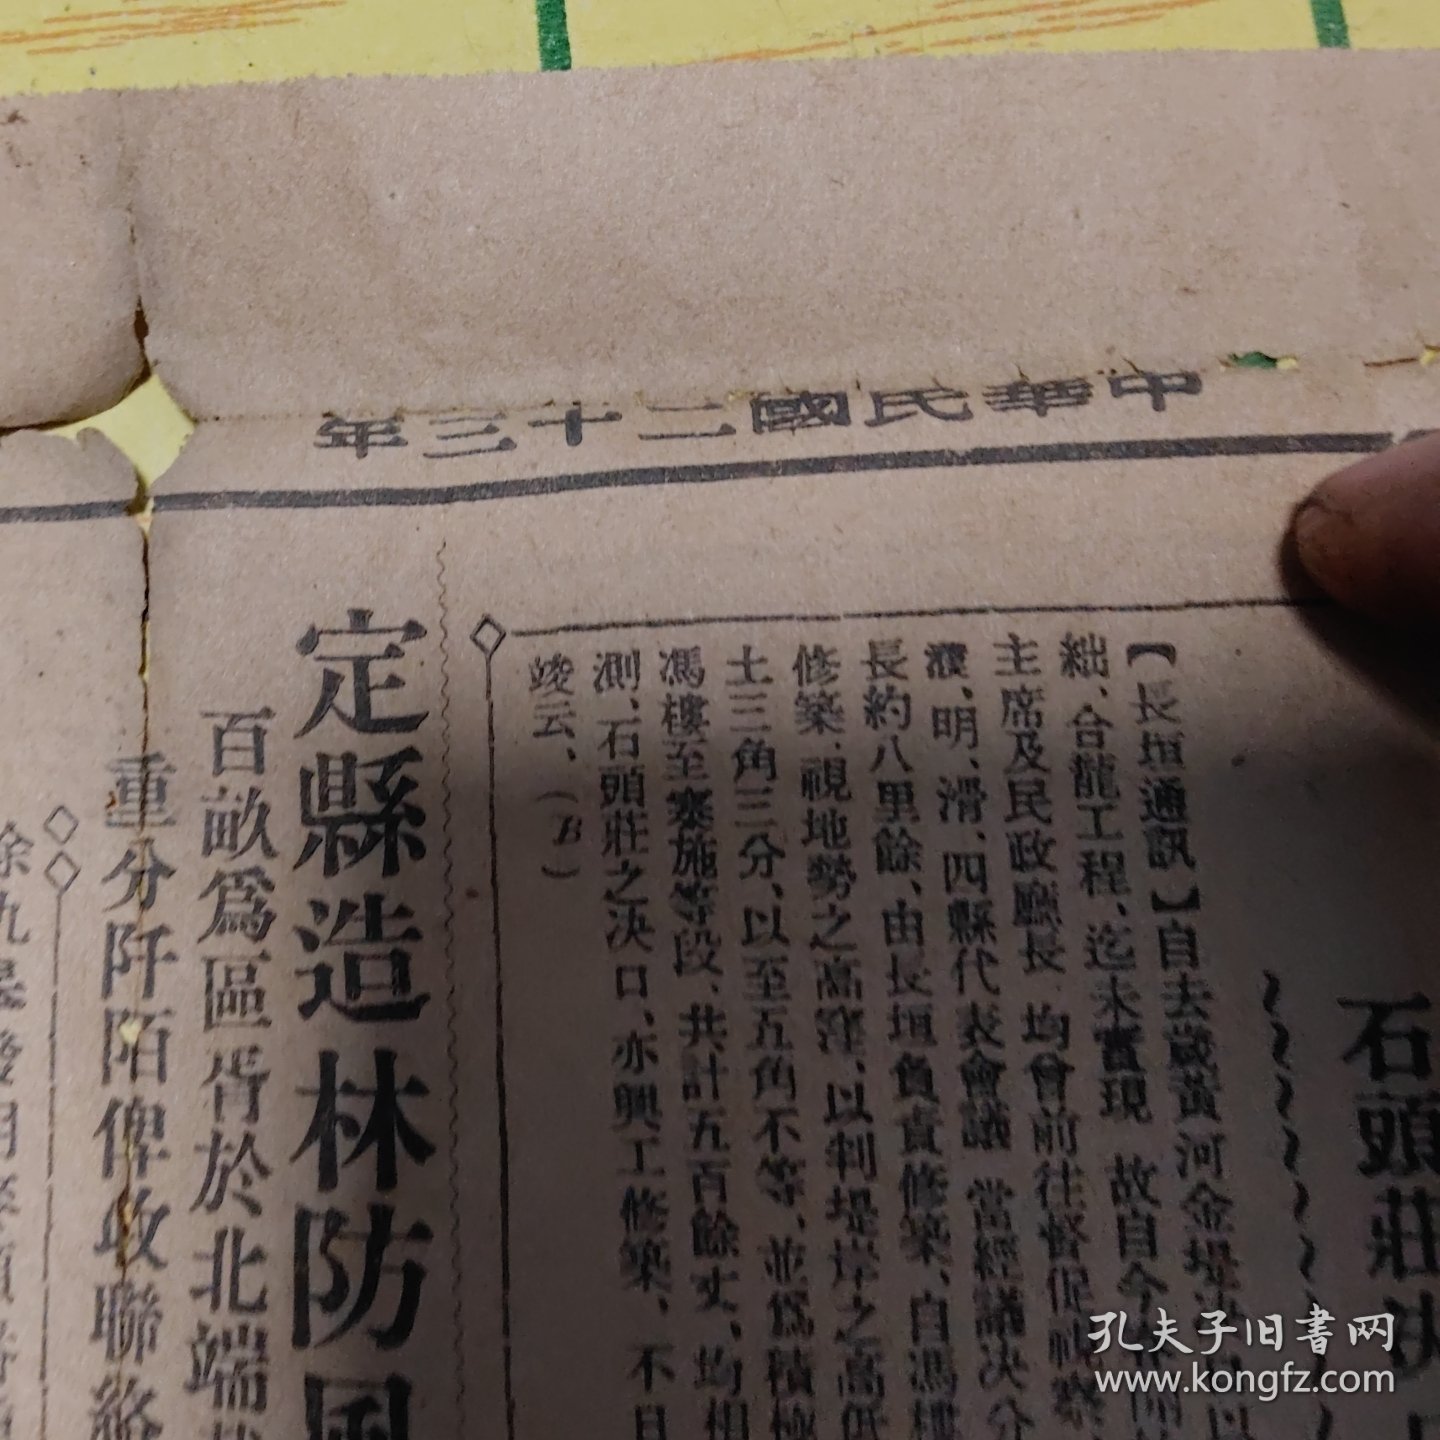 中華民國二十三年
石頭莊決
【長垣通訊】自去歲黃河金堤
絀、合龍工程、迄未實現 故自今
主席及民政廳長 均曾前往督促視察
濮、明、滑、四縣代表會議 當經議决分
長約八里餘、由長垣負責修築、自馮樓
修築、視地勢之高窪、以判堤岸之高低
土三角三分、以至五角不等、並爲積極
馮樓至寨施等段、共計五百餘丈、均相
測、石頭莊之决口、亦興工修築、不日
竣云、(B)
定縣造林防風
百畝爲區胥於北端
重分阡陌俾收聯絡
孔夫子旧書网
www.kongfz.com